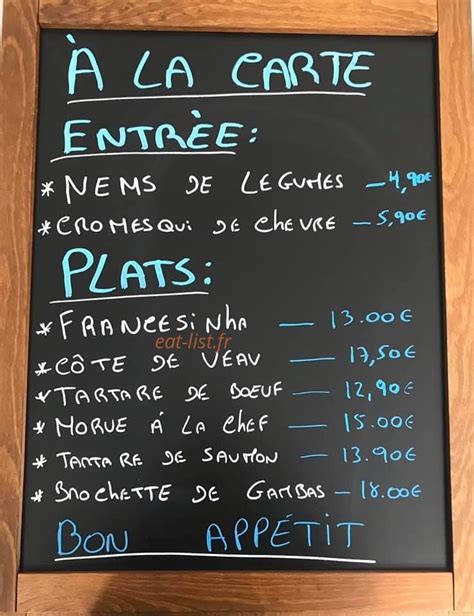 À LA CARTE
ENTRÈE:
* NEMS DE LEGUMES — 4,90€
* CROMESQUI DE CHEVRE — 5,90€
PLATS:
* FRANCESINHA — 13.00€
eat-list.fr
* CÔTE DE VEAU — 17,50€
* TARTARE DE BOEUF — 12,90€
* MORUE À LA CHEF — 15.00€
* TARTARE DE SAUMON — 13.90€
* BROCHETTE DE GAMBAS — 18.00€
BON APPÉTIT